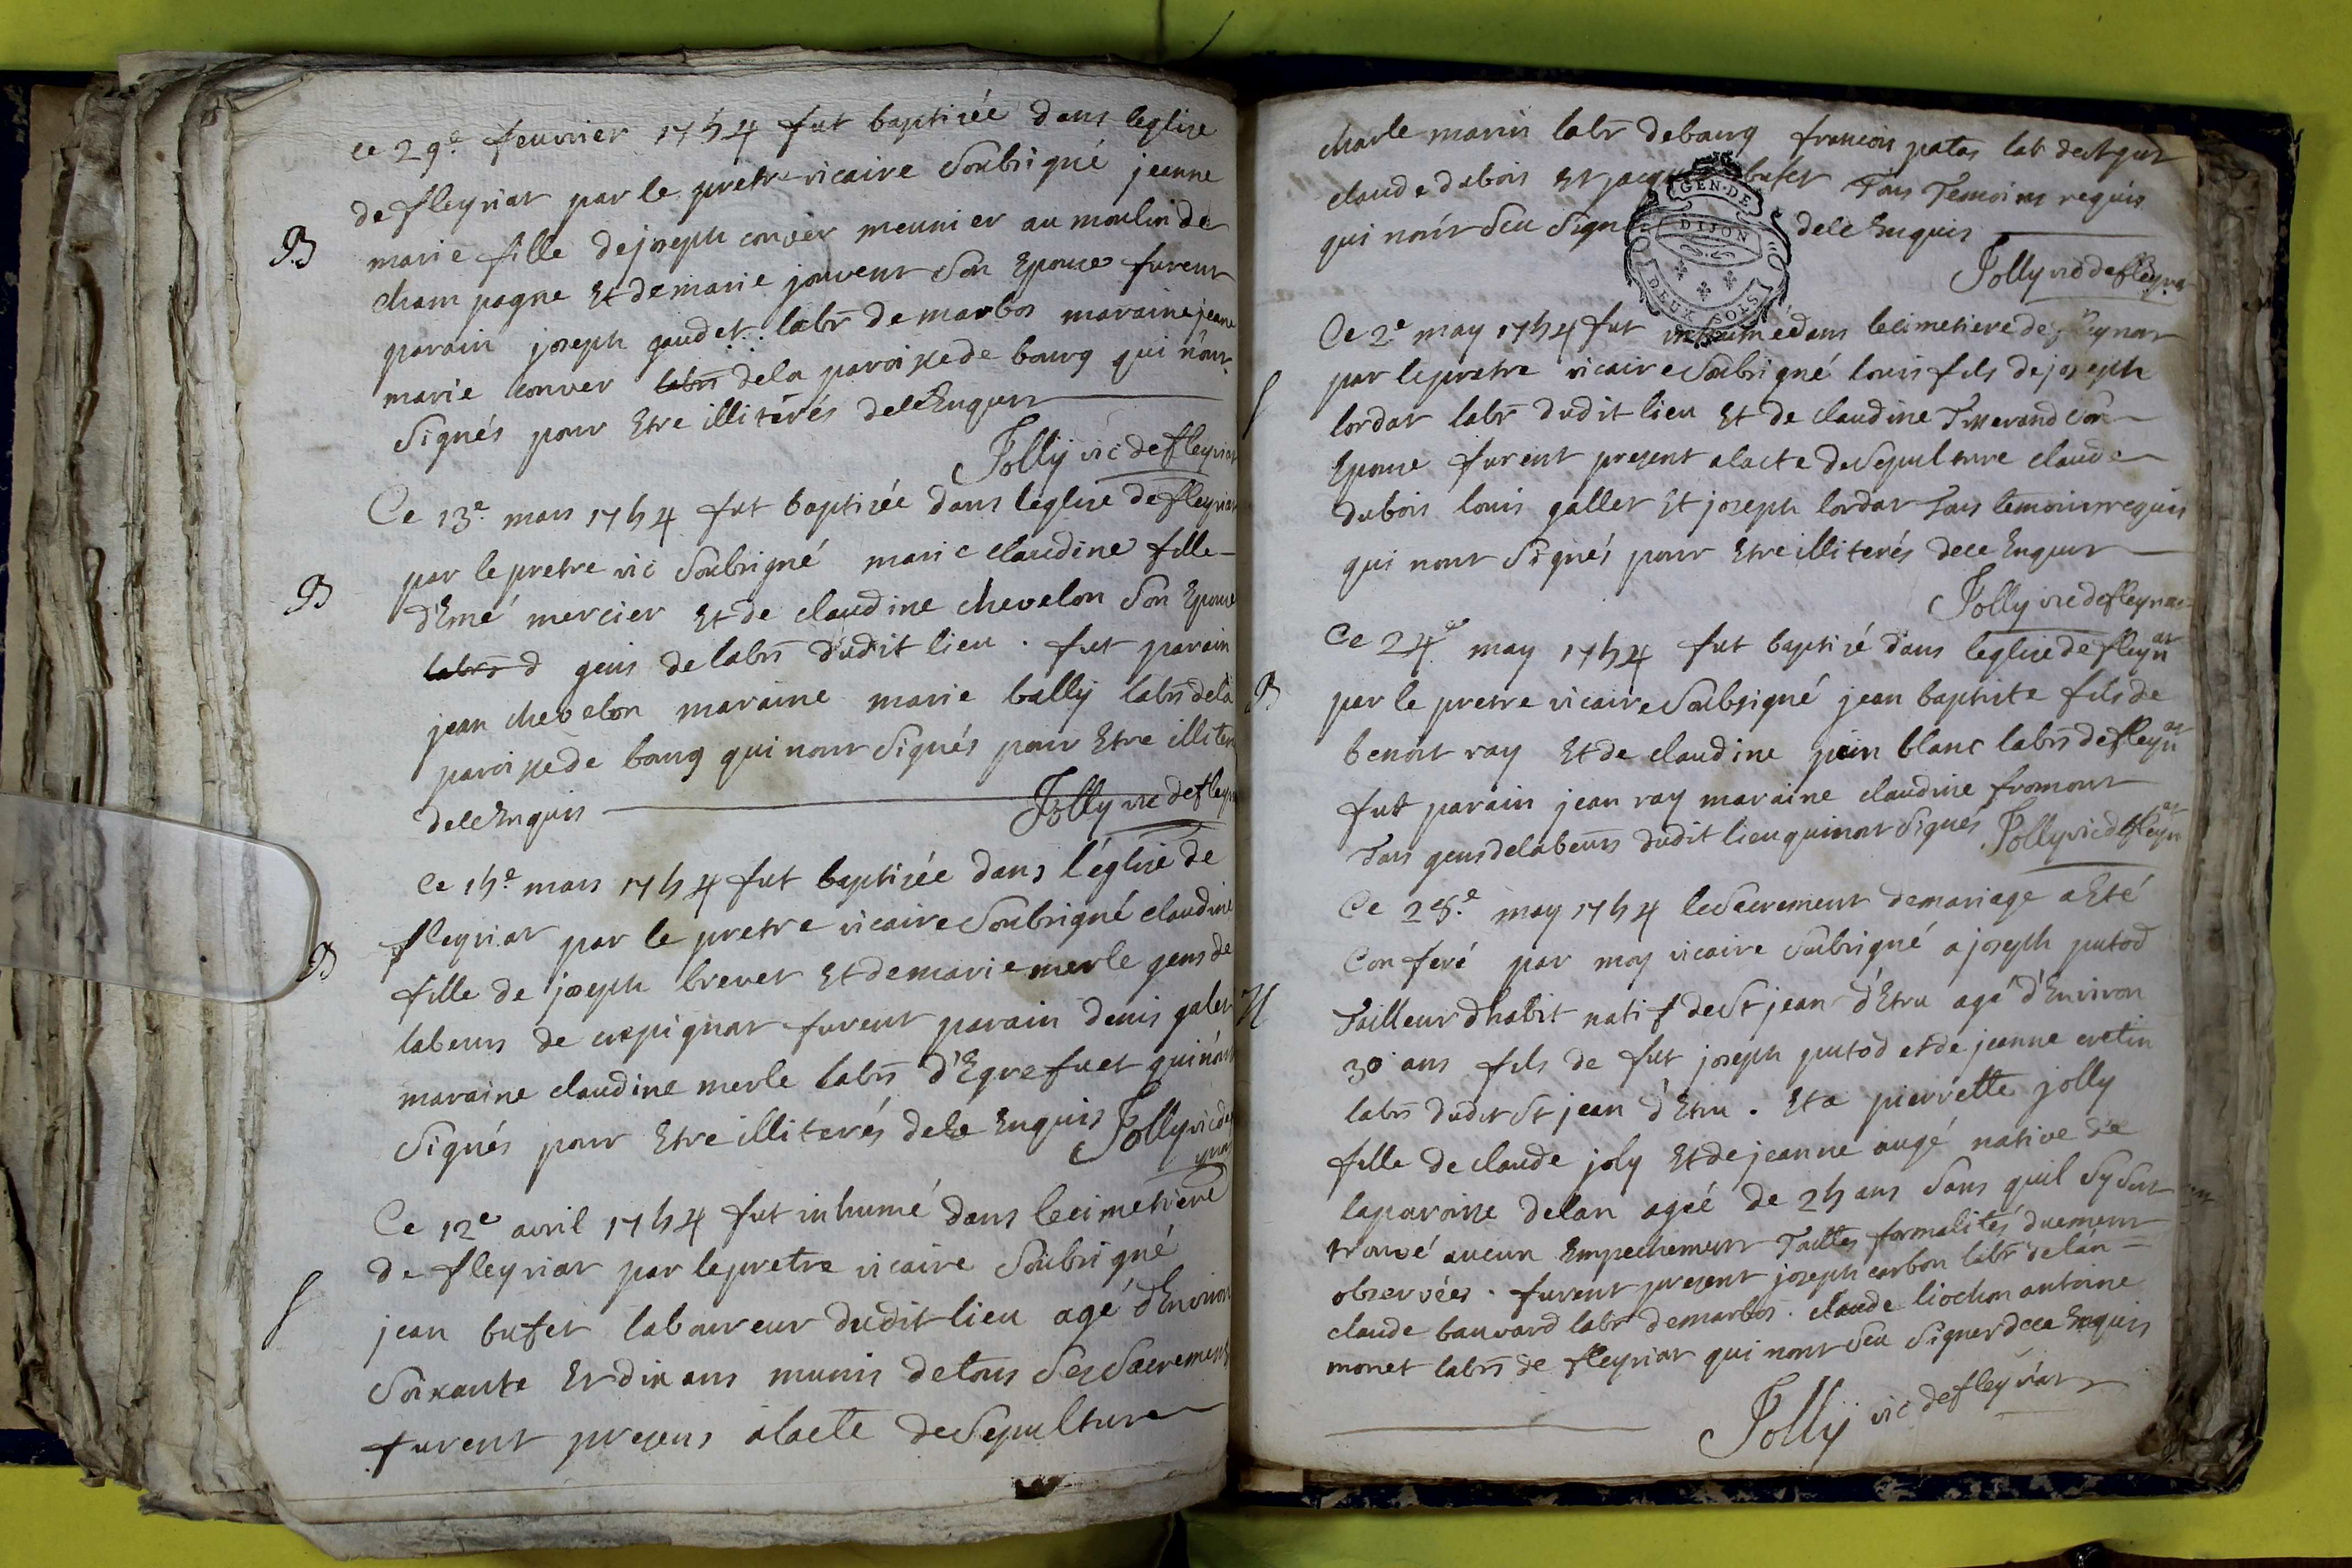 ce 29e feuvrier 1754 fut baptisée dans leglise
de fleyriat par le pretre vicaire Soubsigné jeanne
B
marie fille de joseph conver meunier au moulin de
champagne Et de marie jouvent Son Epouse furent
parain joseph gaudet labrs de marbos maraine jeane
marie conver labrs dela paroisse de bourg qui n'ont
Signés pour Etre illiterés dece Enquis
Jolly vic de fleyriat
Ce 13e mars 1754 fut baptisée dans leglise de fleyriat
par le pretre vic Soubsigné marie claudine fille
B
d'Emé mercier Et de claudine chevelon Son Epouse
labrs d gens de labrs dudit lieu . fut parain
jean chevelon maraine marie bally labrs dela
paroisse de bourg qui nont Signés pour Etre illiter
dece Enquis
Jolly vic de fleyr
Ce 15e mars 1754 fut baptisée dans l'église de
fleyriat par le pretre vicaire Soubsigné claudine
B
fille de joseph brevet Et de marie merle gens de
labeurs de crepignat furent parain denis galet
maraine claudine merle labrs d'Egrefuet qui n'ont
Signés pour Etre illiterés dece Enquis Jolly vic de
yriat
Ce 12e avril 1754 fut inhumé dans lecimetiere
de fleyriat par lepretre vicaire Soubsigné
S
jean bufet laboureur dudit lieu agé d'Environ
Soixante Et dix ans munis de tous Ses Sacrements
furent presens a lacte de Sepulture
charle marin labr de bourg francois patas lab
claude dubois Et jacque bufet Tous Temoins requis
qui nont Seu Sign dece Enquis
GEN. DE
DIJON
DEUX SOLS
Jolly vic de fleyria
Ce 2e may 1754 fut inhumé dans lecimetiere de fleyriat
par lepretre vicaire Soubsigné louis fils de joseph
S
lordat labr dudit lieu Et de claudine Son
Epouse furent present a lacte de Sepulture claude
dubois louis gallet Et joseph lordat Tous temoins requis
qui nont Signés pour Etre illiterés dece Enquis
Jolly vic de fleyriat
Ce 24e may 1754 fut baptisé dans leglise de fleyriat
B
par le pretre vicaire Soubsigné jean baptiste fils de
benoit ray Et de claudine pain blanc labrs de fleyriat
fut parain jean ray maraine claudine fromont
Tous gens de labeurs dudit lieu qui nont Signés Jolly vic de fleyriat
Ce 28e may 1754 le Sacrement de mariage a Eté
Conferé par moy vicaire Soubsigné a joseph putod
M
Tailleur dhabit natif de St jean d'Etru agé d'Environ
30 ans fils de fut joseph putod et de jeanne cretin
labrs dudit St jean d'Etru . Et a pierrette jolly
fille de claude joly Et de jeanne augé native de
laparoisse delan agée de 25 ans Sans quil Sy Soit
trouvé aucun Empechement Touttes formalités duement
observées . furent present joseph carbon labr de lan
claude bauvard labr de marbos . claude liochon antoine
monet labrs de fleyriat qui nont Seu Signer dece Enquis
Jolly vic de fleyriat